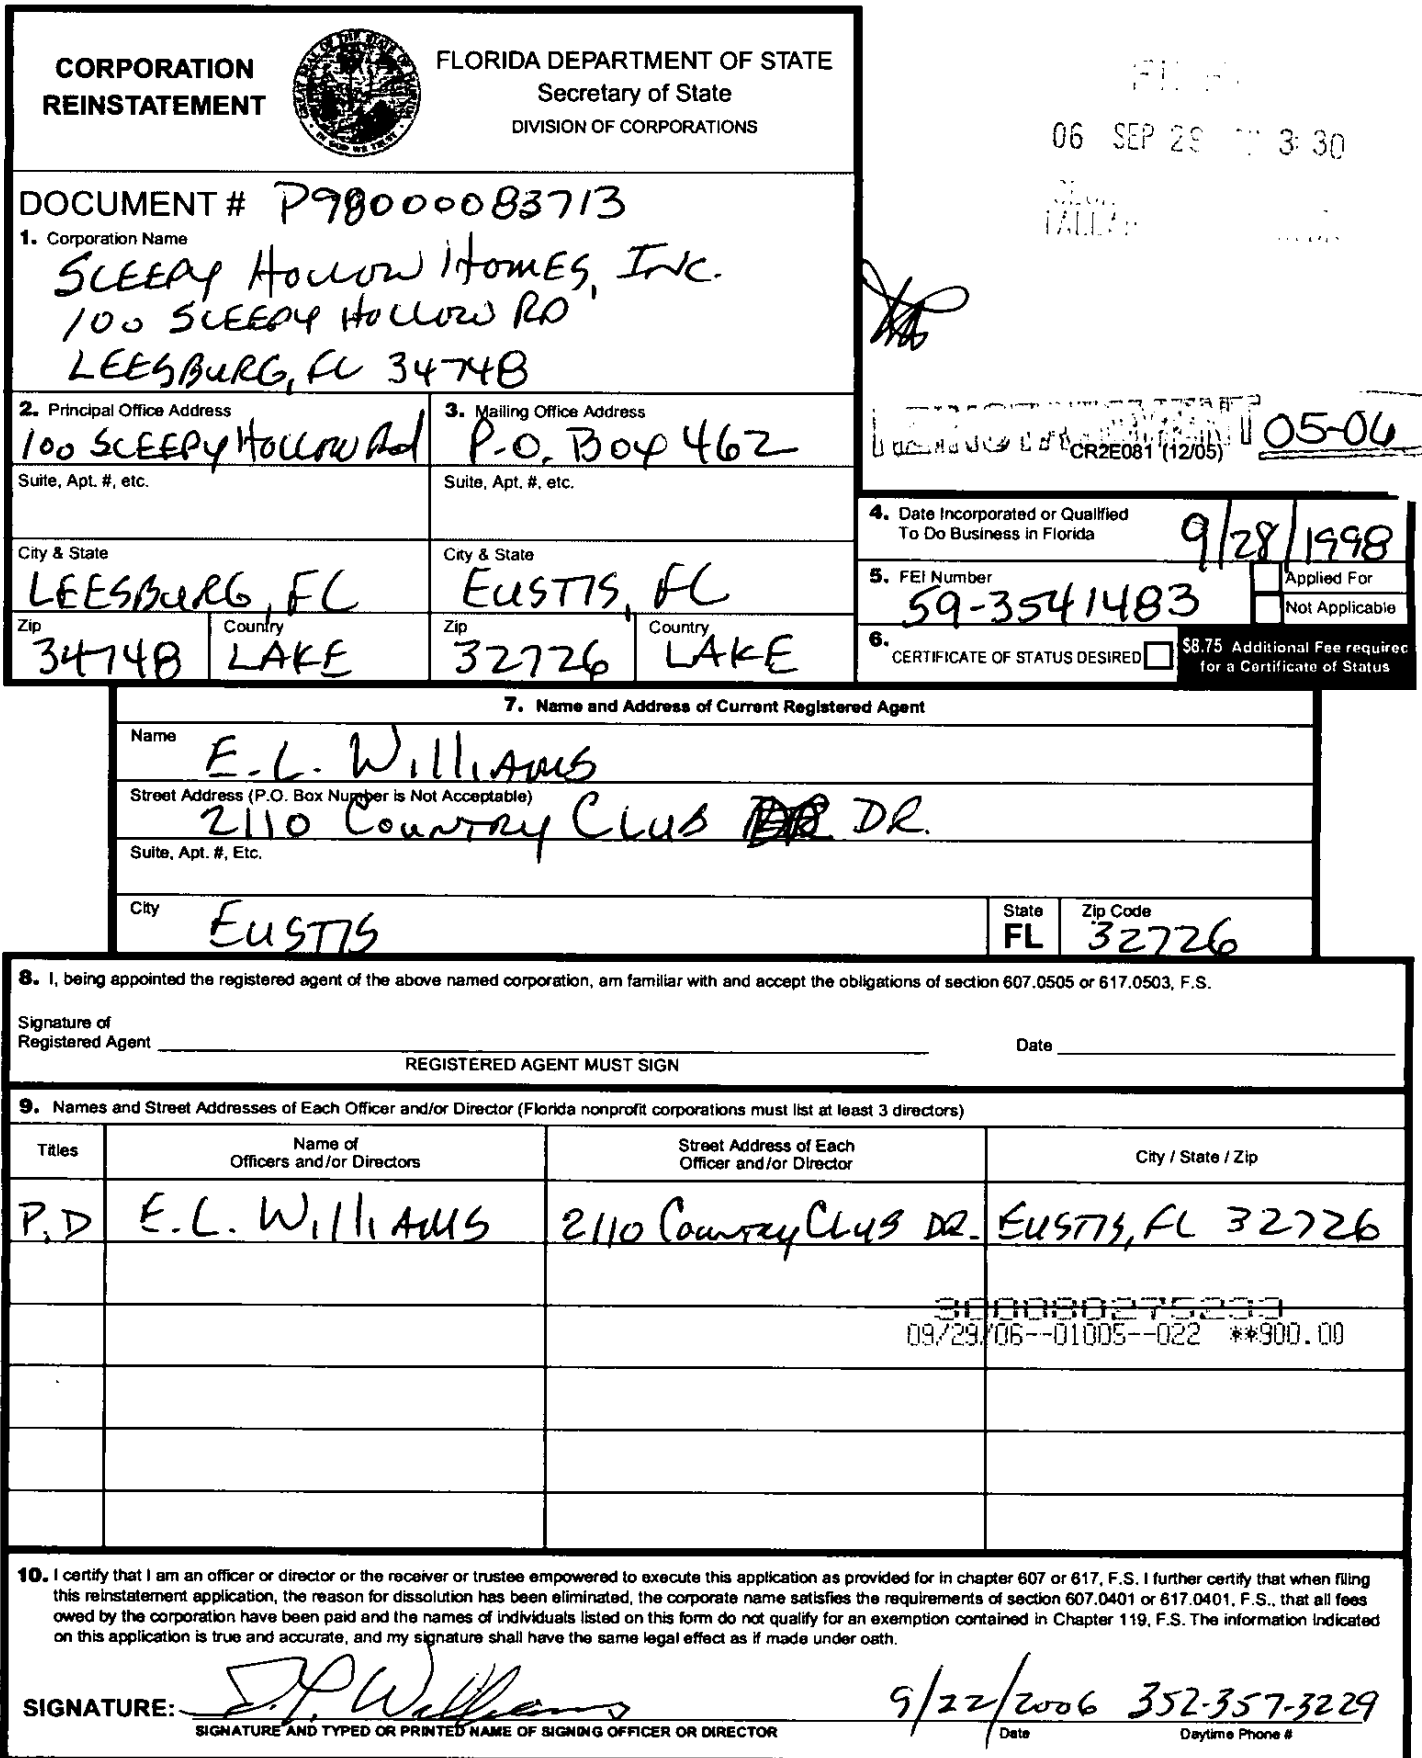 CORPORATION
REINSTATEMENT
FLORIDA DEPARTMENT OF STATE
Secretary of State
DIVISION OF CORPORATIONS
06 SEP 29 3:30
DOCUMENT # P98000083713
1. Corporation Name
SLEEPY HOLLOW HOMES, INC.
100 SLEEPY HOLLOW RD
LEESBURG, FL 34748
2. Principal Office Address
100 SLEEPY HOLLOW Rd
Suite, Apt. #, etc.
City & State
LEESBURG, FL
Zip
34748
Country
LAKE
3. Mailing Office Address
P.O. BOX 462
Suite, Apt. #, etc.
City & State
EUSTIS, FL
Zip
32726
Country
LAKE
REINSTATEMENT 05-06
CR2E081 (12/05)
4. Date Incorporated or Qualified
To Do Business in Florida
9/28/1998
5. FEI Number
59-3541483
Applied For
Not Applicable
6. CERTIFICATE OF STATUS DESIRED
$8.75 Additional Fee required
for a Certificate of Status
7. Name and Address of Current Registered Agent
Name
E.L. WilliAMS
Street Address (P.O. Box Number is Not Acceptable)
2110 COUNTRY CLUB DR.
Suite, Apt. #, Etc.
City
EUSTIS
State
FL
Zip Code
32726
8. I, being appointed the registered agent of the above named corporation, am familiar with and accept the obligations of section 607.0505 or 617.0503, F.S.
Signature of
Registered Agent
Date
REGISTERED AGENT MUST SIGN
9. Names and Street Addresses of Each Officer and/or Director (Florida nonprofit corporations must list at least 3 directors)
Titles
Name of
Officers and/or Directors
Street Address of Each
Officer and/or Director
City / State / Zip
P.D E.L. WilliAMS 2110 COUNTRY CLUB DR. EUSTIS, FL 32726
300080275233
09/29/06--01005--022 **900.00
10. I certify that I am an officer or director or the receiver or trustee empowered to execute this application as provided for in chapter 607 or 617, F.S. I further certify that when filing
this reinstatement application, the reason for dissolution has been eliminated, the corporate name satisfies the requirements of section 607.0401 or 617.0401, F.S., that all fees
owed by the corporation have been paid and the names of individuals listed on this form do not qualify for an exemption contained in Chapter 119, F.S. The information indicated
on this application is true and accurate, and my signature shall have the same legal effect as if made under oath.
SIGNATURE: E.L. Williams 9/22/2006 352-357-3229
SIGNATURE AND TYPED OR PRINTED NAME OF SIGNING OFFICER OR DIRECTOR
Date
Daytime Phone #